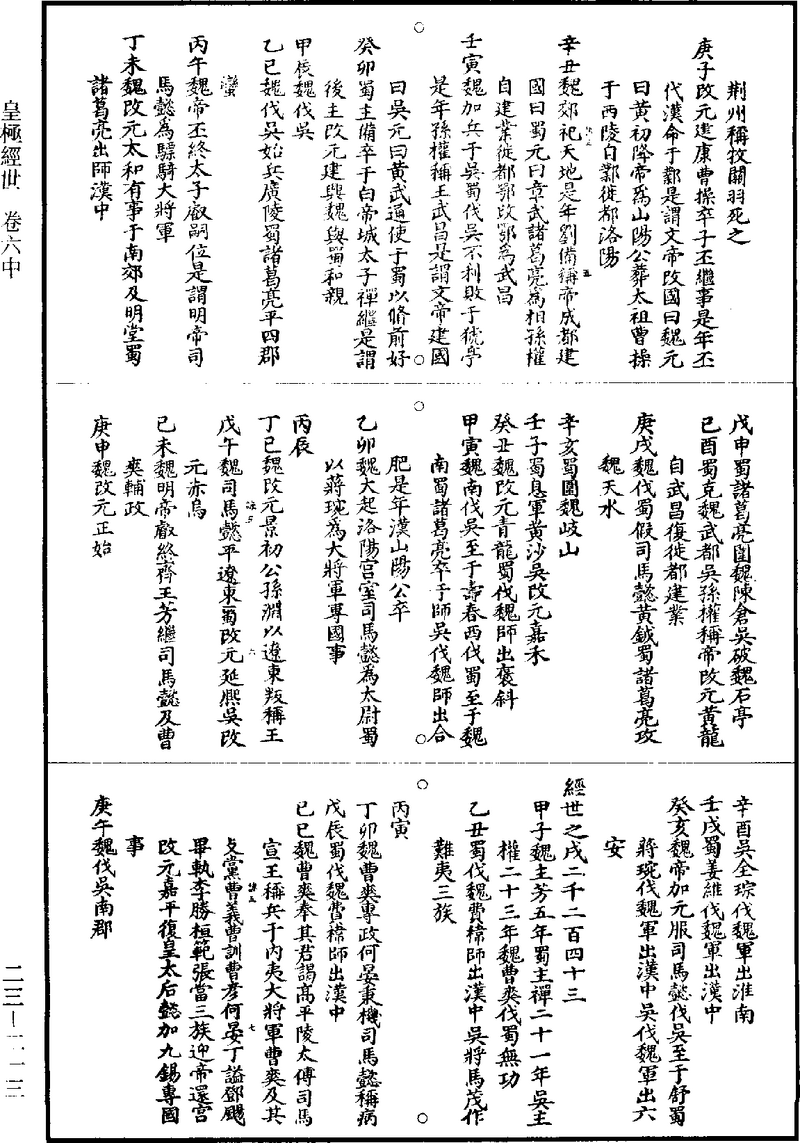 荆州稱牧關羽死之
庚子改元建康曹操卒子丕繼事是年丕
代漢命于鄴是謂文帝改國曰魏元
曰黃初降帝爲山陽公葬太祖曹操
于西陵自鄴徙都洛陽
辛丑魏郊祀天地是年劉備稱帝成都建
國曰蜀元曰章武諸葛亮爲相孫權
自建業徙都鄂改鄂爲武昌
壬寅魏加兵于吳蜀伐吳不利敗于猇亭
是年孫權稱王武昌是謂文帝建國
曰吳元曰黃武通使于蜀以脩前好
癸卯蜀主備卒于白帝城太子禪繼是謂
後主改元建興魏與蜀和親
甲辰魏伐吳
乙巳魏伐吳始兵廣陵蜀諸葛亮平四郡
蠻
丙午魏帝丕終太子叡嗣位是謂明帝司
馬懿爲驃騎大將軍
丁未魏改元太和有事于南郊及明堂蜀
諸葛亮出師漢中
戊申蜀諸葛亮圍魏陳倉吳破魏石亭
己酉蜀克魏武都吳孫權稱帝改元黃龍
自武昌復徙都建業
庚戌魏伐蜀假司馬懿黃鉞蜀諸葛亮攻
魏天水
辛亥蜀圍魏岐山
壬子蜀息軍黃沙吳改元嘉禾
癸丑魏改元青龍蜀伐魏師出褒斜
甲寅魏南伐吳至于壽春西伐蜀至于魏
南蜀諸葛亮卒于師吳伐魏師出合
肥是年漢山陽公卒
乙卯魏大起洛陽宫室司馬懿爲太尉蜀
以蔣琬爲大將軍專國事
丙辰
丁巳魏改元景初公孫淵以遼東叛稱王
戊午魏司馬懿平遼東蜀改元延熈吳改
元赤烏
己未魏明帝叡終齊王芳繼司馬懿及曹
爽輔政
庚申魏改元正始
辛酉吳全琮伐魏軍出淮南
壬戌蜀姜維伐魏軍出漢中
癸亥魏帝加元服司馬懿伐吳至于舒蜀
蔣琬伐魏軍出漢中吳伐魏軍出六
安
經世之戌二千二百四十三
甲子魏主芳五年蜀主禪二十一年吳主
權二十三年魏曹爽伐蜀無功
乙丑蜀伐魏費禕師出漢中吳將馬茂作
難夷三族
丙寅
丁卯魏曹爽專政何晏秉機司馬懿稱病
戊辰蜀伐魏費禕師出漢中
己巳魏曹爽奉其君謁高平陵太傅司馬
宣王稱兵于内夷大將軍曹爽及其
支黨曹羲曹訓曹彥何晏丁謐鄧颺
畢軌李勝桓範張當三族迎帝還宫
改元嘉平復皇太后懿加九錫專國
事
庚午魏伐吳南郡
皇極經世 卷六中
二三—二一三